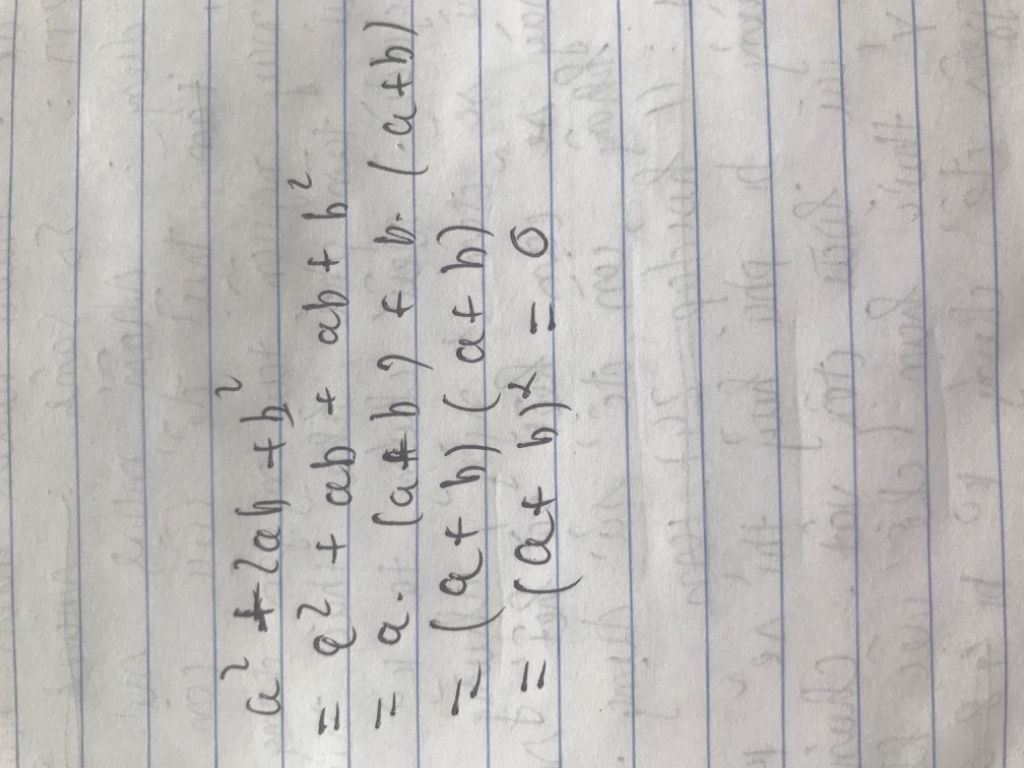 a² + 2ab + b²
= a² + ab + ab + b²
= a. (a+b) + b. (a+b)
= (a+b) (a+b)
= (a+b)² = 0